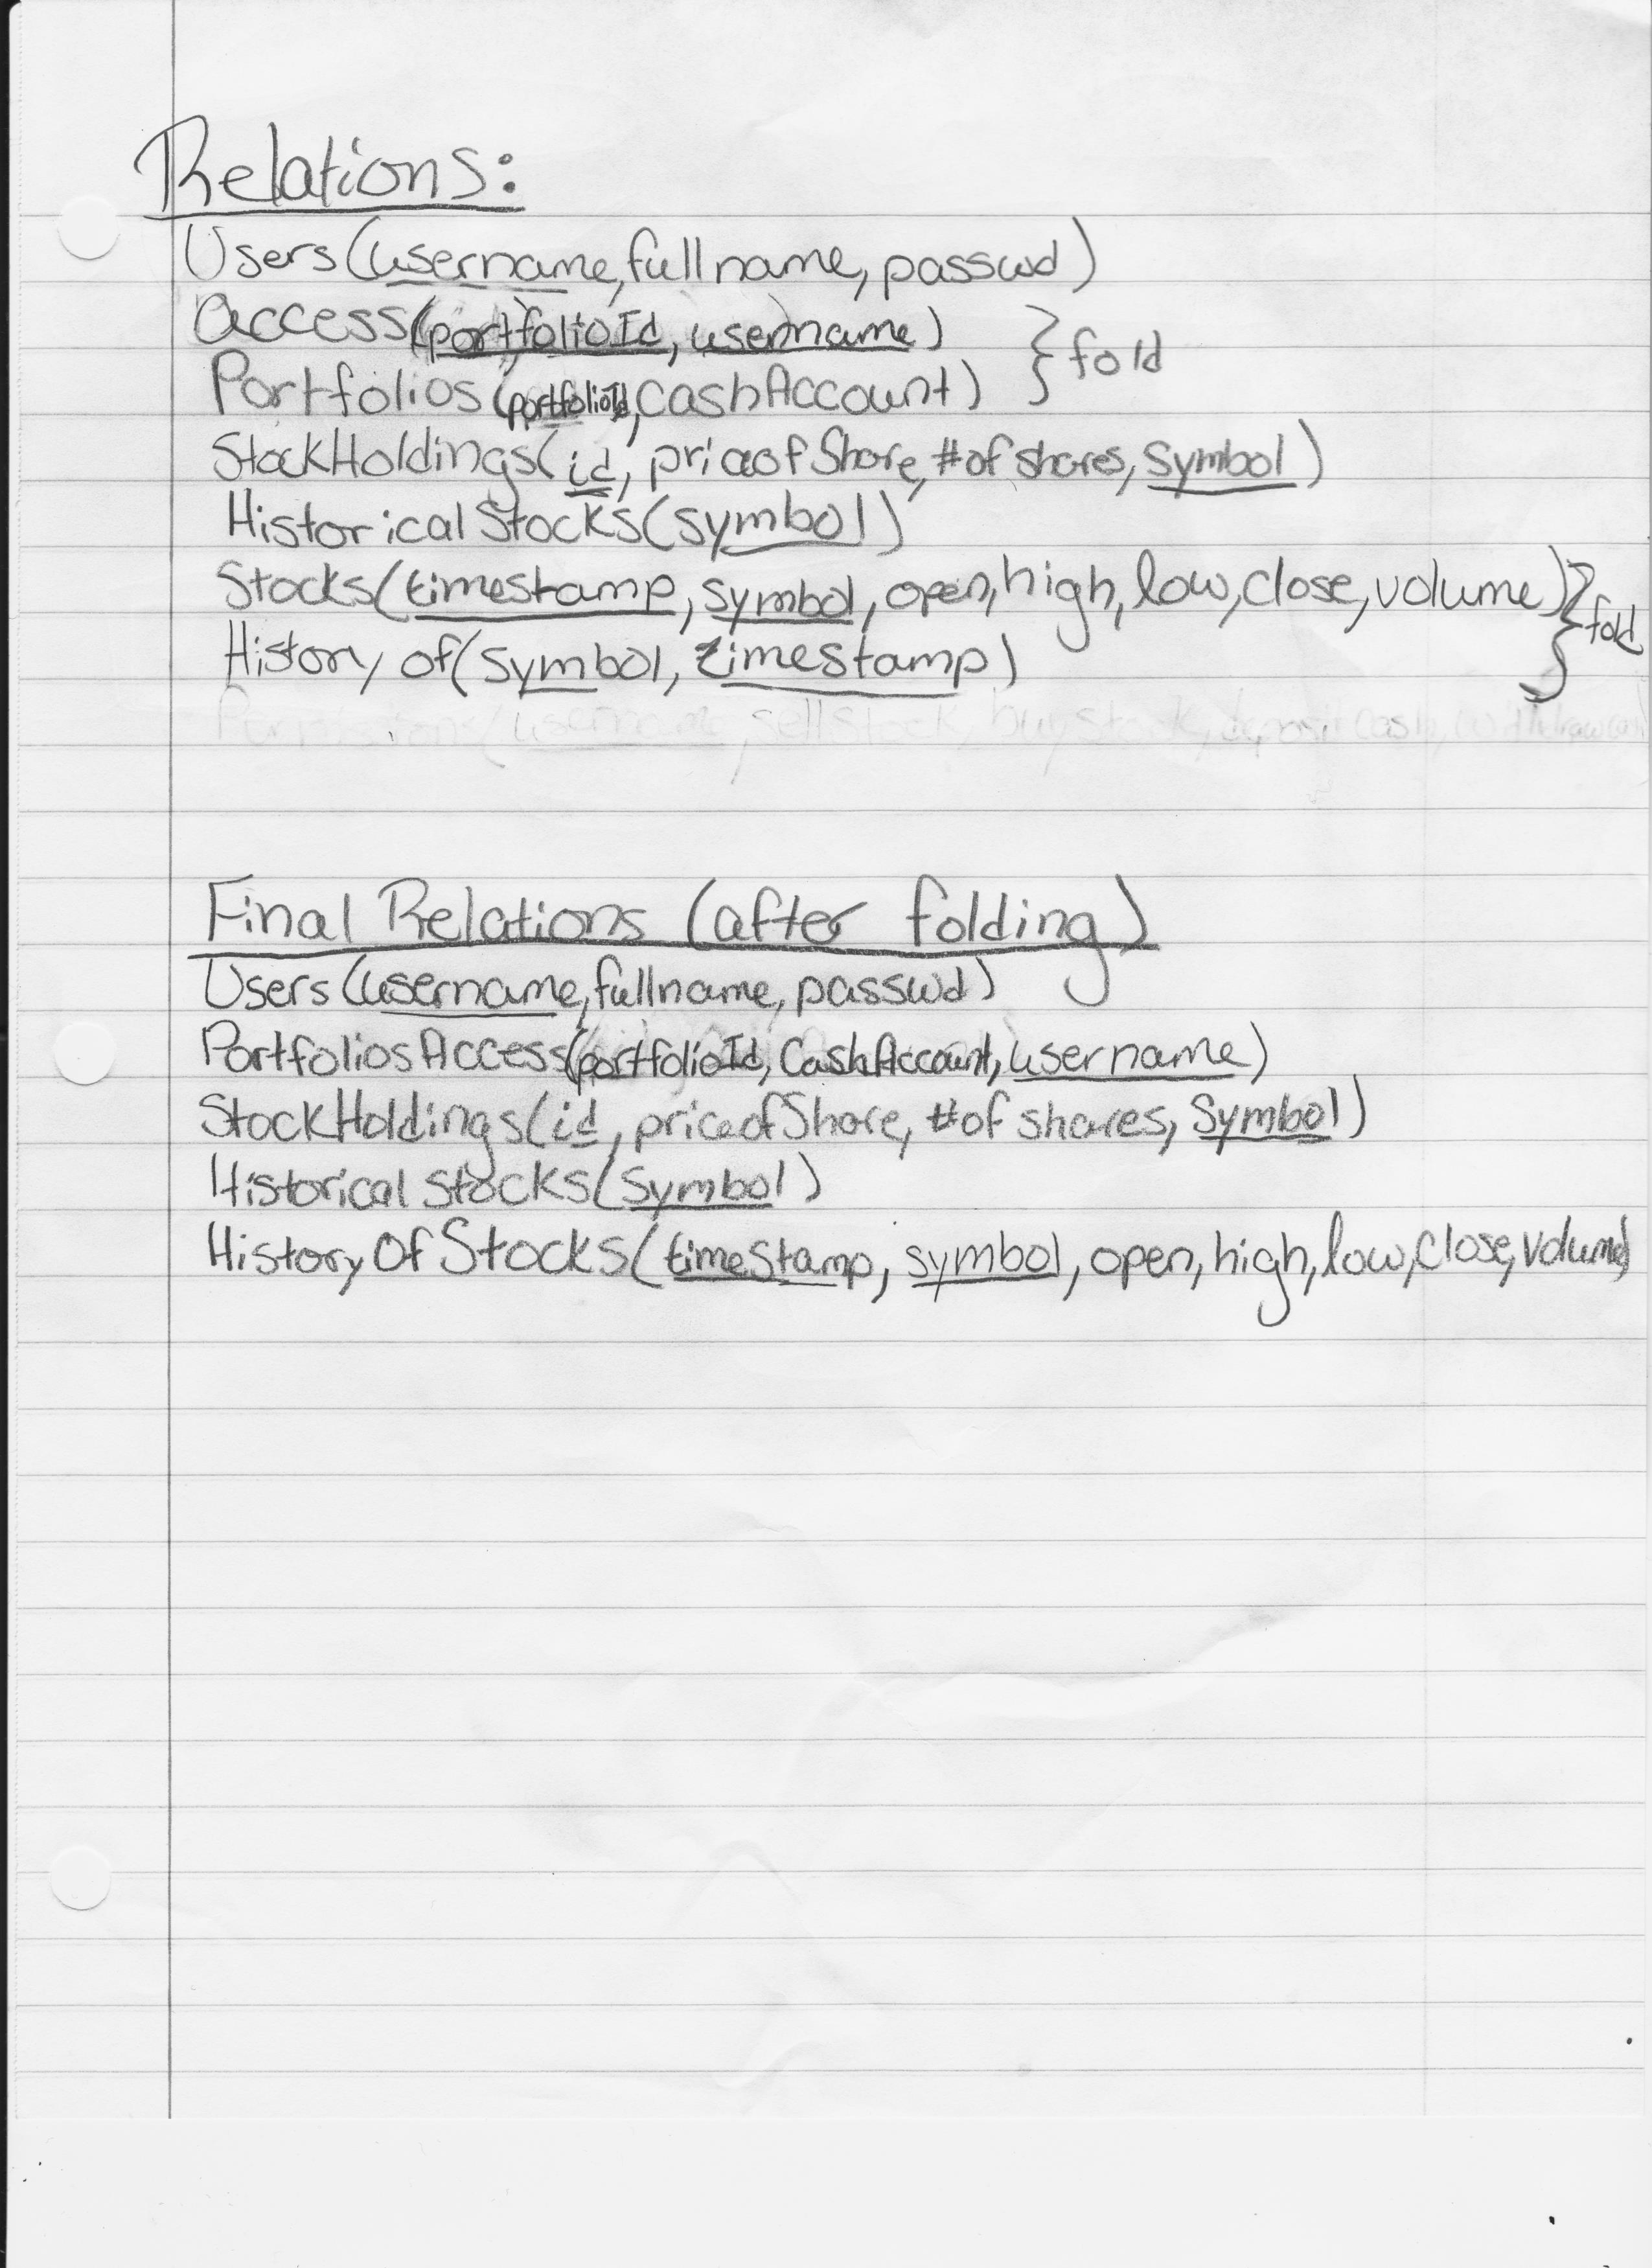 Relations:
Users(username, fullname, passwd)
Access(portfolioId, username) } fold
Portfolios(portfolioId, CashAccount)
StockHoldings(id, priceofShare, #of shares, Symbol)
Historical Stocks(symbol)
Stocks(timestamp, symbol, open, high, low, close, volume) } fold
History of(symbol, timestamp)
Permissions(username, sellstock, buystock, deposit cash, withdrawcash
Final Relations (after folding)
Users(username, fullname, passwd)
PortfoliosAccess(portfolioId, CashAccount, username)
StockHoldings(id, priceofShare, #of shares, Symbol)
Historical stocks(symbol)
HistoryOfStocks(timeStamp, symbol, open, high, low, close, volume)